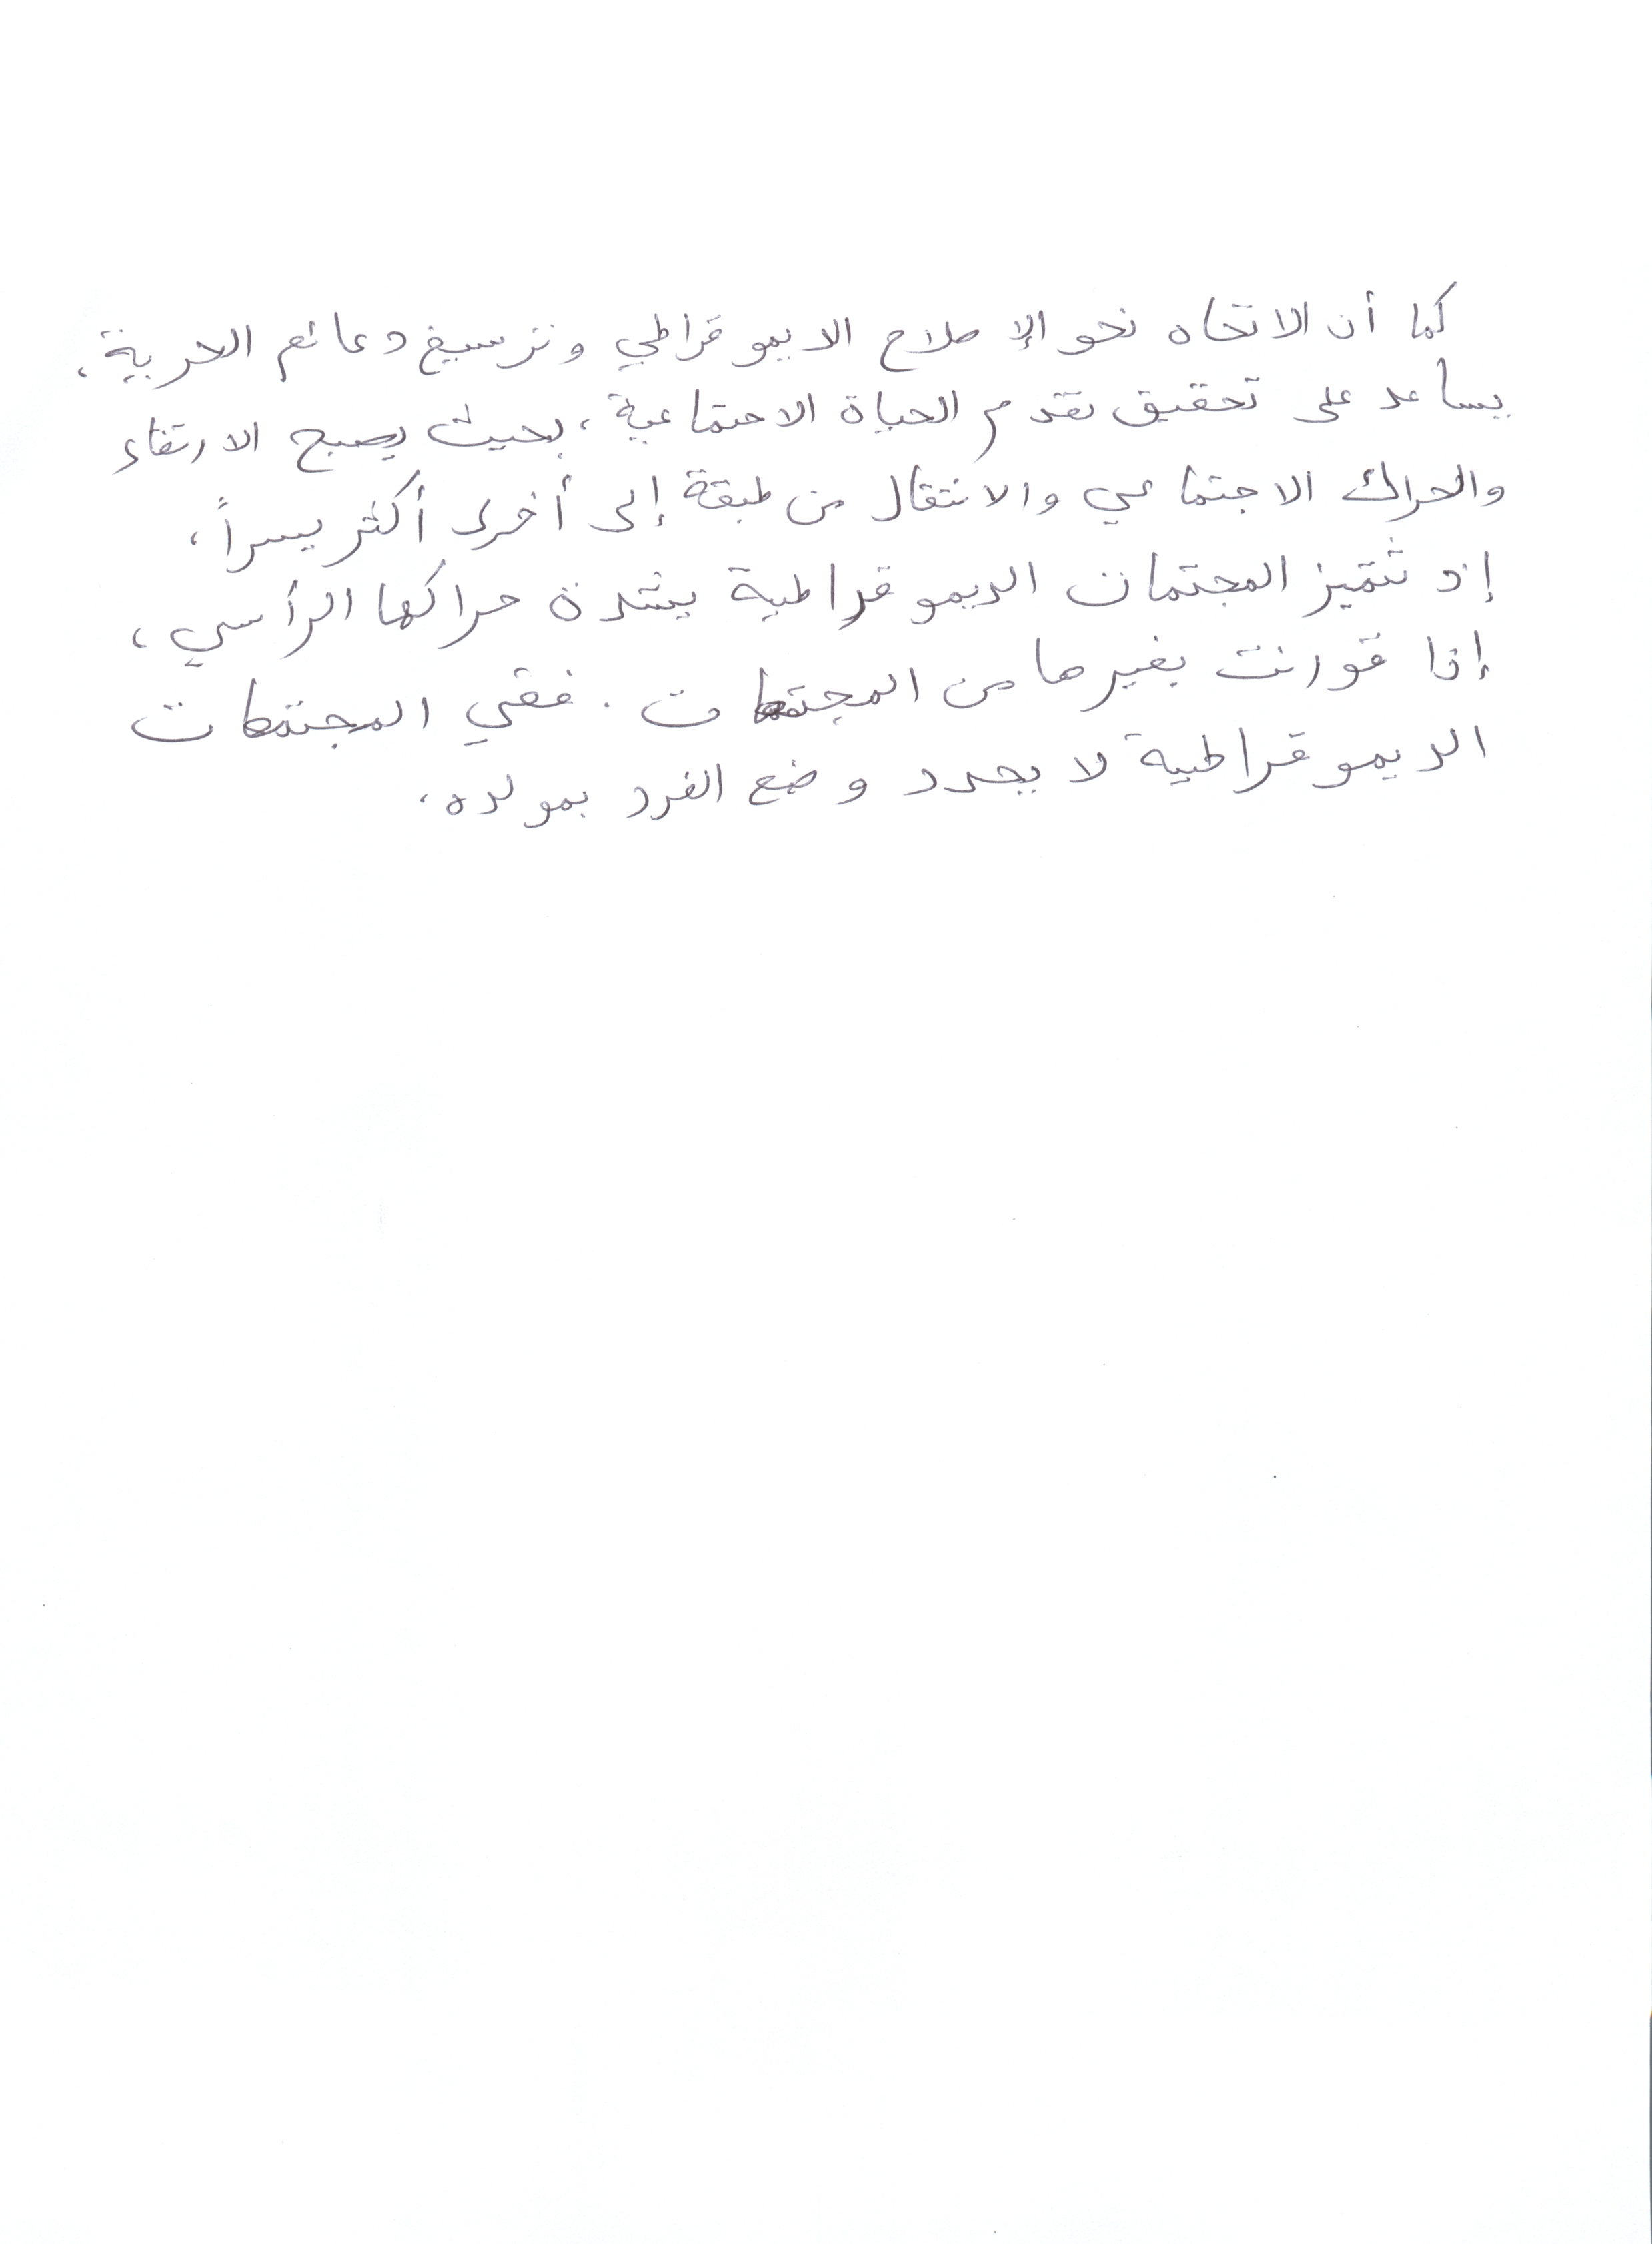 كما أن الاتجاه نحو الإصلاح الديموقراطي وترسيخ دعائم الحرية،
يساعد على تحقيق تقدم الحياة الاجتماعية، بحيث يصبح الارتقاء
والحراك الاجتماعي والانتقال من طبقة إلى أخرى أكثر يسراً،
إذ تتميز المجتمعات الديموقراطية بشدة حراكها الرأسي،
إذا قورنت بغيرها من المجتمعات. ففي المجتمعات
الديموقراطية لا يحدد وضع الفرد بمولده،